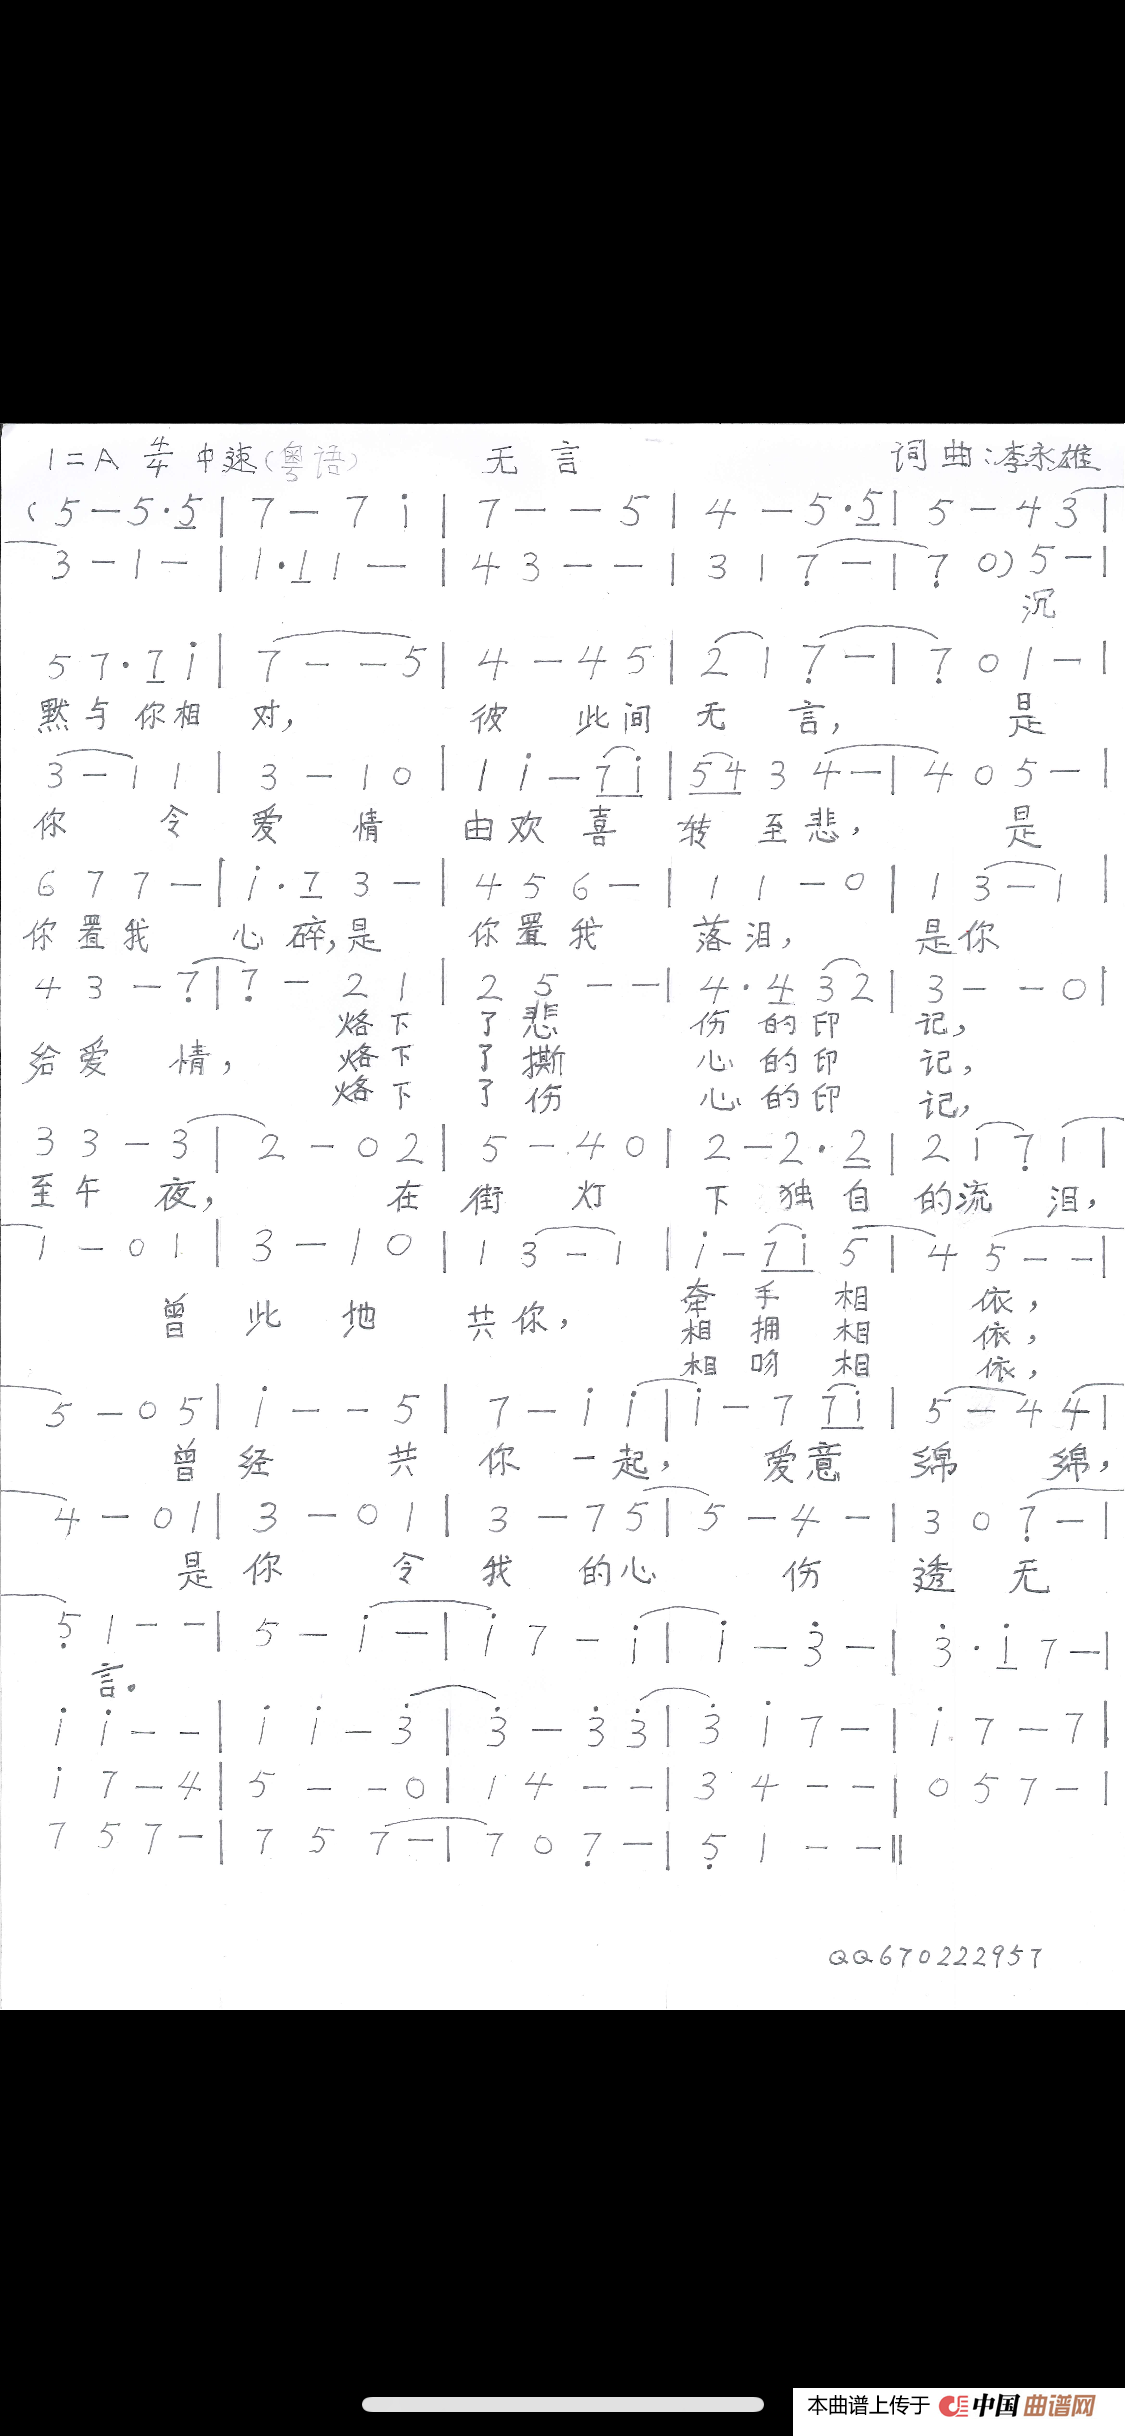 1=A 4/4 中速（粤语） 无言 词曲：李永雄
( 5 — 5 · 5 | 7 — 7 i | 7 — — 5 | 4 — 5 · 5 | 5 — 4 3 |
3 — 1 — | 1 · 1 1 — | 4 3 — — | 3 1 7 — | 7 0 ) 5 — |
沉
5 7 · 7 i | 7 — — 5 | 4 — 4 5 | 2 1 7 — | 7 0 1 — |
默与你相 对， 彼 此间 无 言， 是
3 — 1 1 | 3 — 1 0 | 1 i — 7 i | 5 4 3 4 — | 4 0 5 — |
你 令 爱 情 由欢 喜 转 至悲， 是
6 7 7 — | i · 7 3 — | 4 5 6 — | 1 1 — 0 | 1 3 — 1 |
你置我 心碎，是 你置我 落泪， 是你
4 3 — 7 | 7 — 2 1 | 2 5 — — | 4 · 4 3 2 | 3 — — 0 |
烙下 了悲 伤的印 记，
给爱 情， 烙下 了撕 心的印 记，
烙下 了伤 心的印 记，
3 3 — 3 | 2 — 0 2 | 5 — 4 0 | 2 — 2 · 2 | 2 1 7 1 |
至午 夜， 在 街 灯 下 独自 的流 泪，
1 — 0 1 | 3 — 1 0 | 1 3 — 1 | i — 7 i 5 | 4 5 — — |
牵 手 相 依，
曾 此 地 共你， 相 拥 相 依，
相 吻 相 依，
5 — 0 5 | i — — 5 | 7 — i i | i — 7 7 i | 5 — 4 4 |
曾 经 共 你 一起， 爱意 绵 绵，
4 — 0 1 | 3 — 0 1 | 3 — 7 5 | 5 — 4 — | 3 0 7 — |
是 你 令 我 的心 伤 透 无
5 1 — — | 5 — i — | i 7 — i | i — 3 — | 3 · i 7 — |
言。
i i — — | i i — 3 | 3 — 3 3 | 3 i 7 — | i 7 — 7 |
i 7 — 4 | 5 — — 0 | 1 4 — — | 3 4 — — | 0 5 7 — |
7 5 7 — | 7 5 7 — | 7 0 7 — | 5 1 — — ||
QQ670222957
本曲谱上传于 中国曲谱网